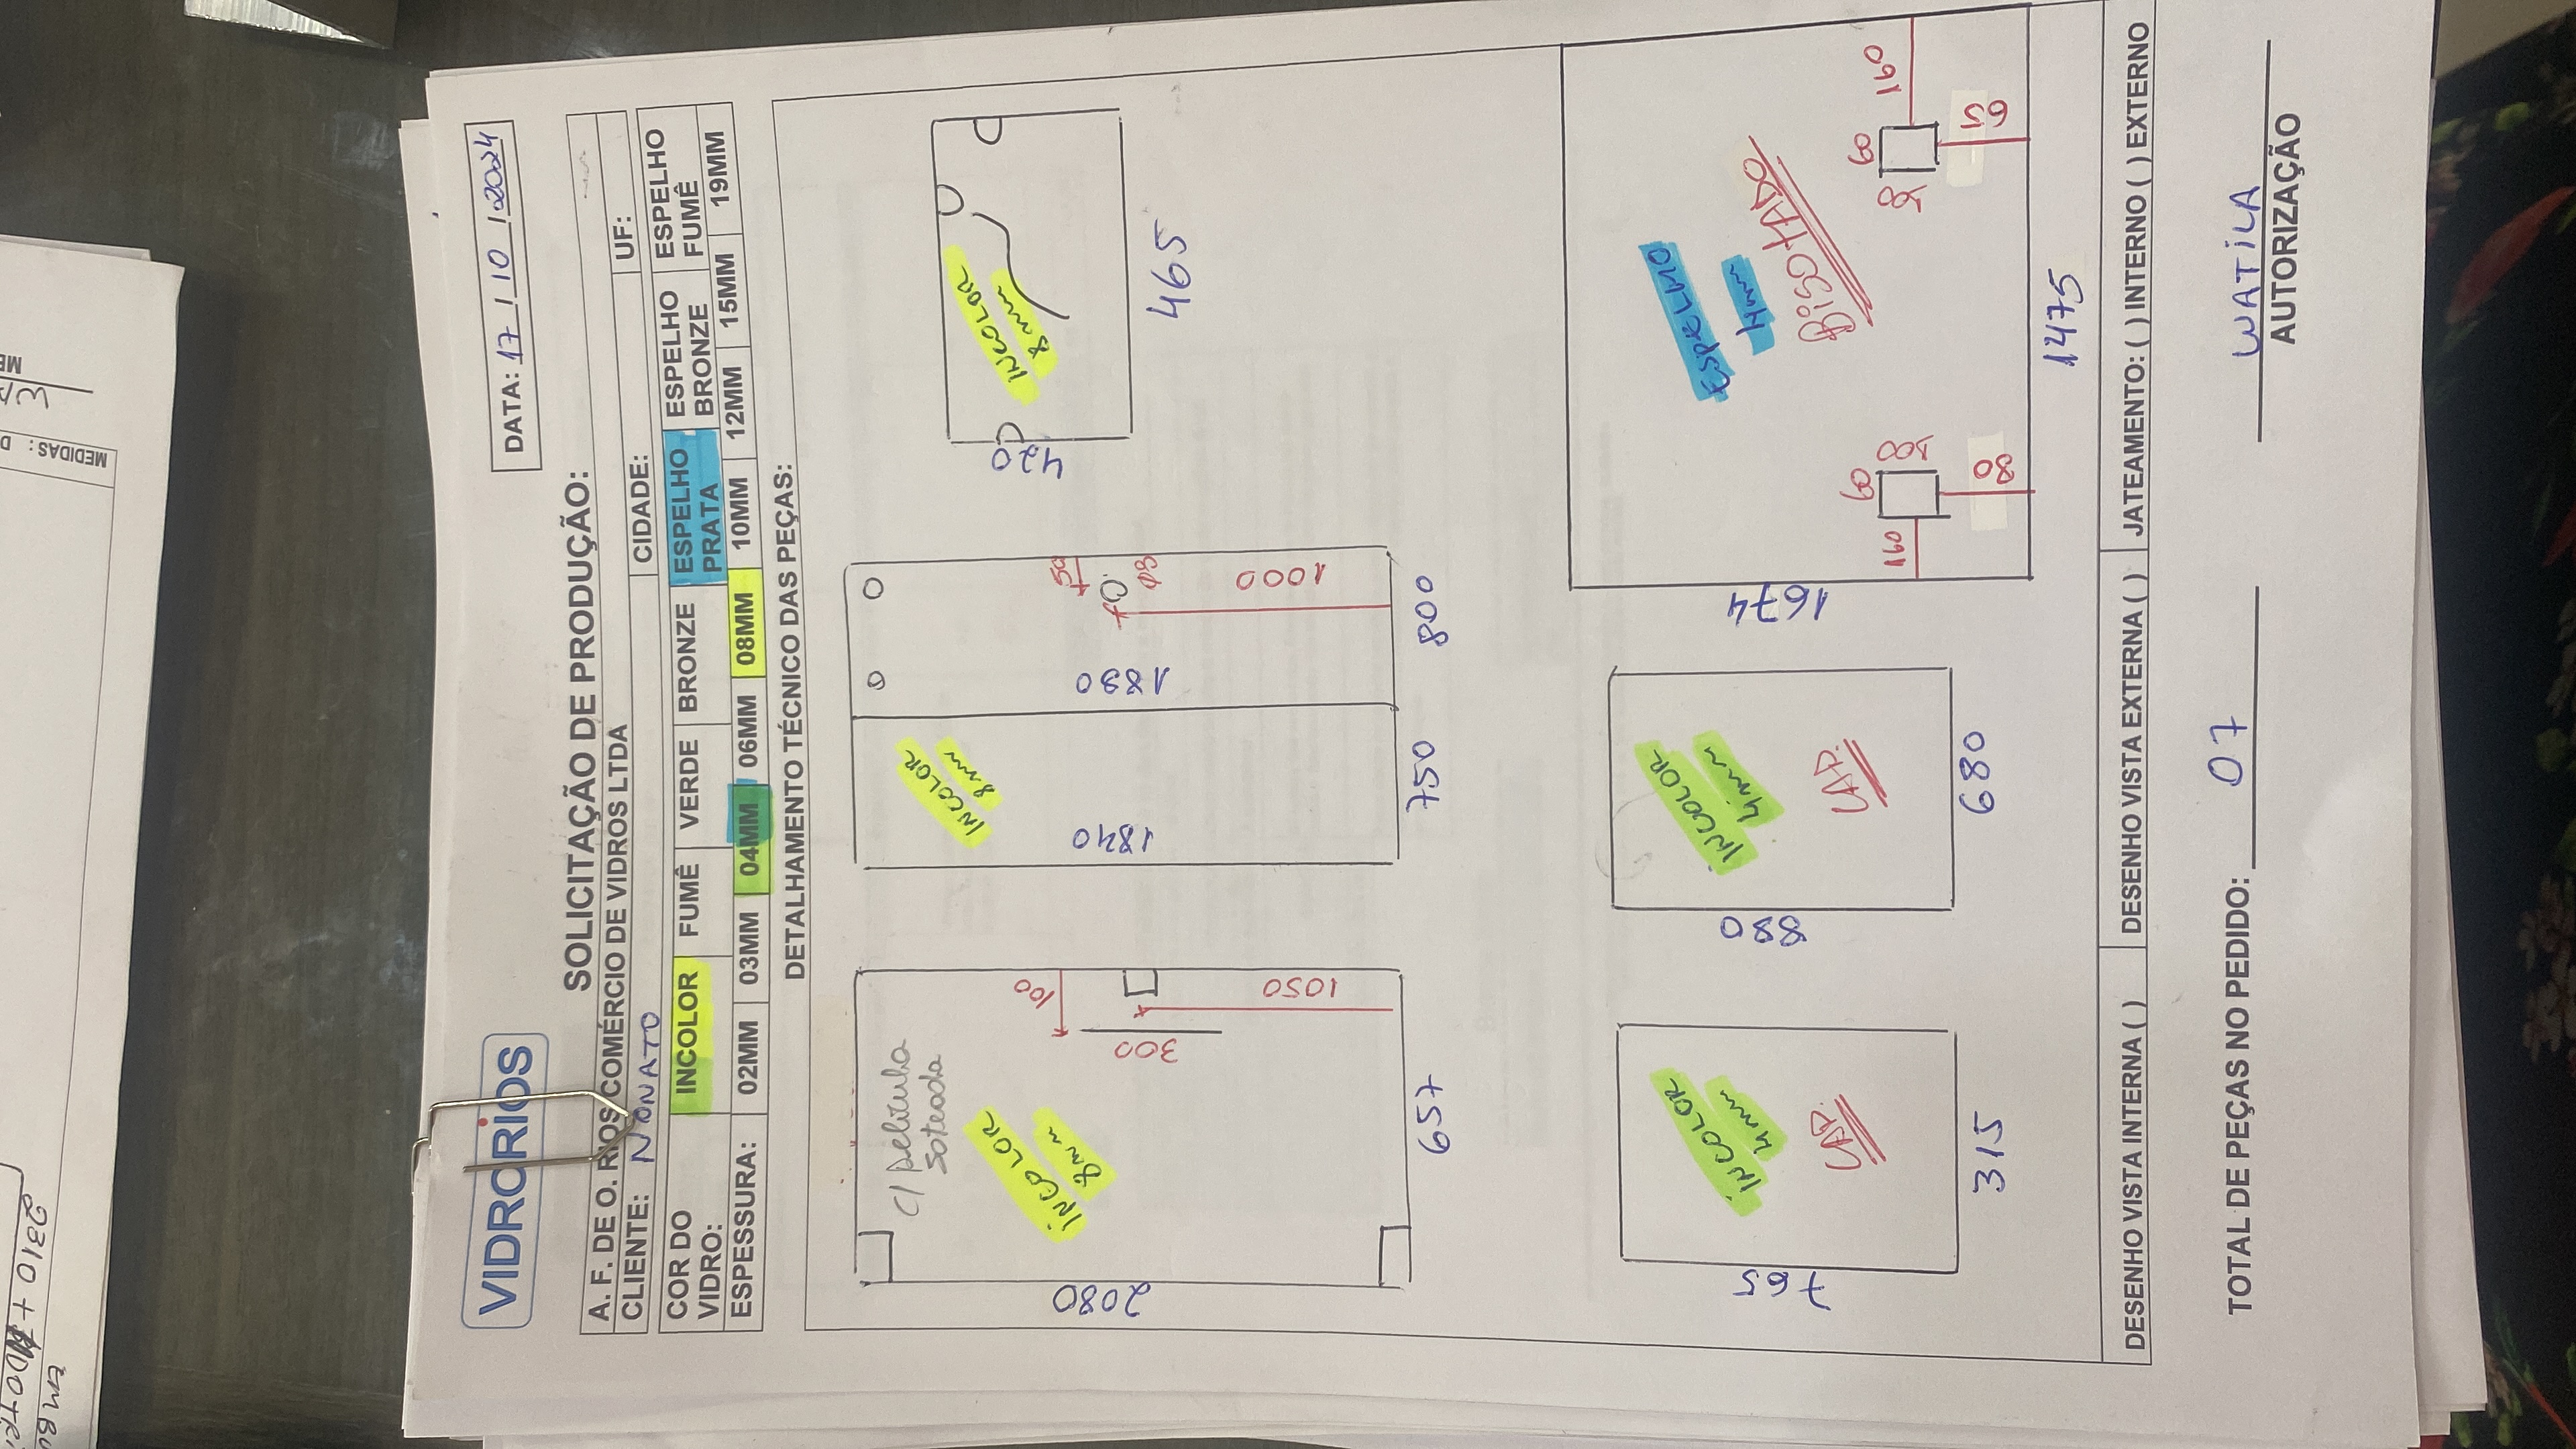 VIDRORIOS
DATA: 17 / 10 / 2024
SOLICITAÇÃO DE PRODUÇÃO:
A. F. DE O. RIOS COMÉRCIO DE VIDROS LTDA
CLIENTE: NONATO CIDADE: UF:
COR DO VIDRO: INCOLOR FUMÊ VERDE BRONZE ESPELHO PRATA ESPELHO BRONZE ESPELHO FUMÊ
ESPESSURA: 02MM 03MM 04MM 06MM 08MM 10MM 12MM 15MM 19MM
DETALHAMENTO TÉCNICO DAS PEÇAS:
C/ pelicula
INCOLOR
8mm
100
300
1050
2080
657
INCOLOR
8mm
1840
1830
50
1000
750
800
INCOLOR
8mm
420
465
INCOLOR
4mm
LAP.
765
315
INCOLOR
4mm
LAP.
880
680
ESPELHO
4mm
BISOTADO
60
160
80
60
160
65
1674
1475
DESENHO VISTA INTERNA ( ) DESENHO VISTA EXTERNA ( ) JATEAMENTO: ( ) INTERNO ( ) EXTERNO
TOTAL DE PEÇAS NO PEDIDO: 07
WATILA
AUTORIZAÇÃO
MEDIDAS:
2310 +